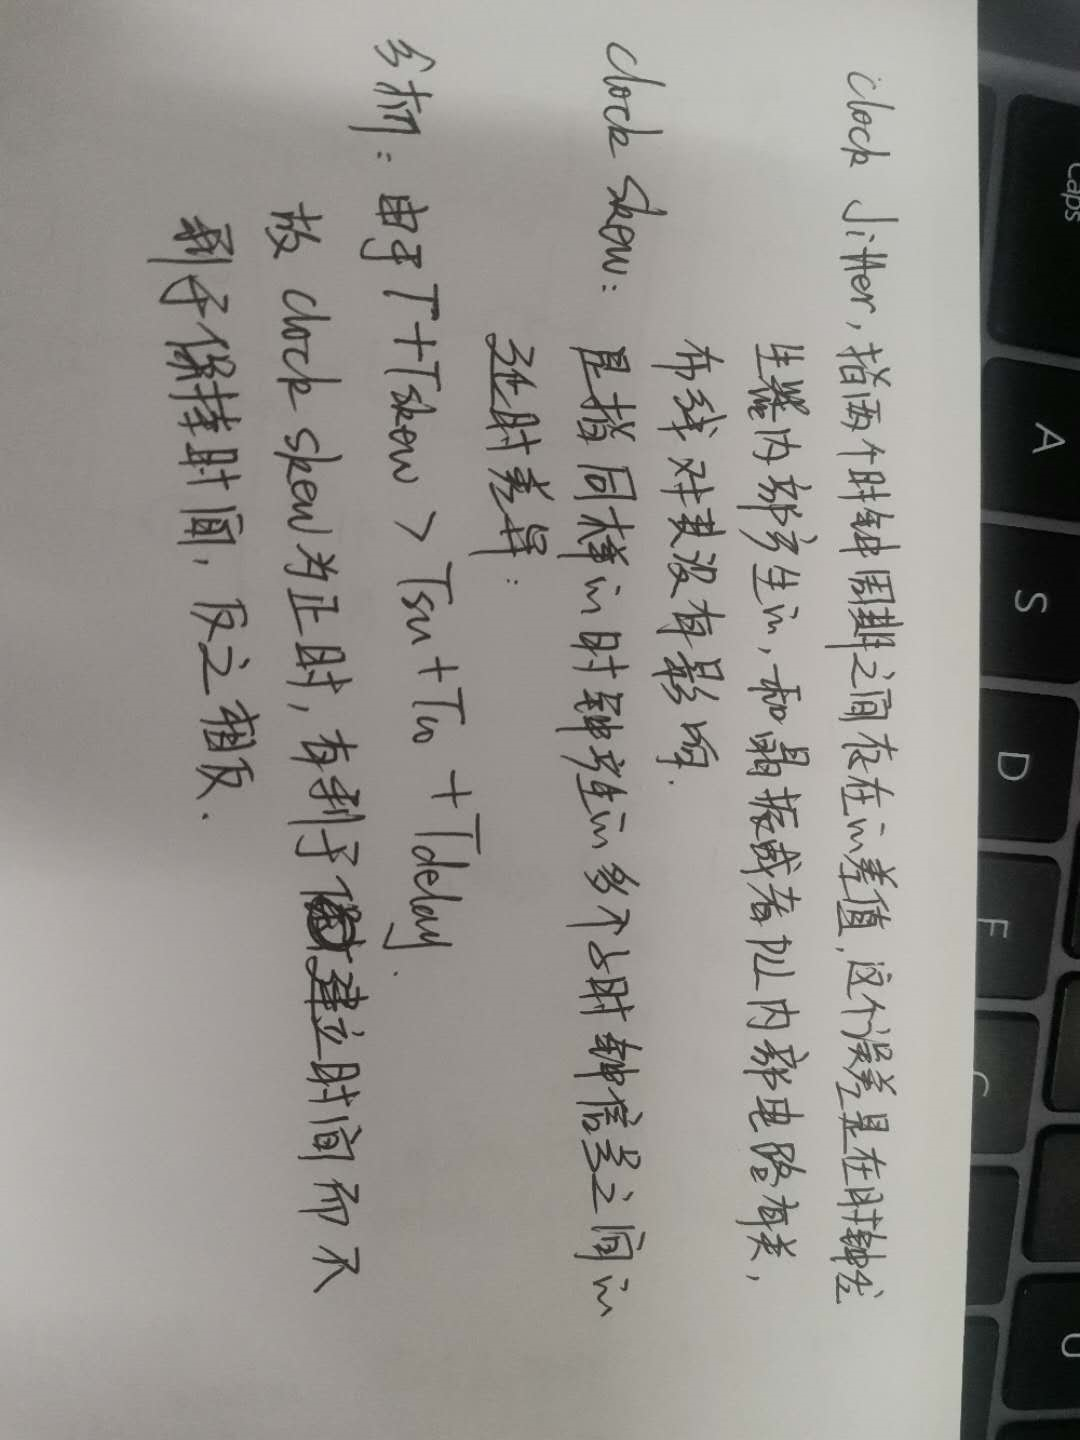 clock Jitter, 指两个时钟周期之间存在的差值,这个误差是在时钟发
生器内部产生的,和晶振或者PLL内部电路有关,
布线对其没有影响.
clock skew: 是指同样的时钟产生的多个子时钟信号之间的
延时差异:
分析: 由于T+Tskew > Tsu+Tco +Tdelay.
故 clock skew为正时,有利于建立时间而不
利于保持时间, 反之相反.
Caps
A
S
D
F
C
U